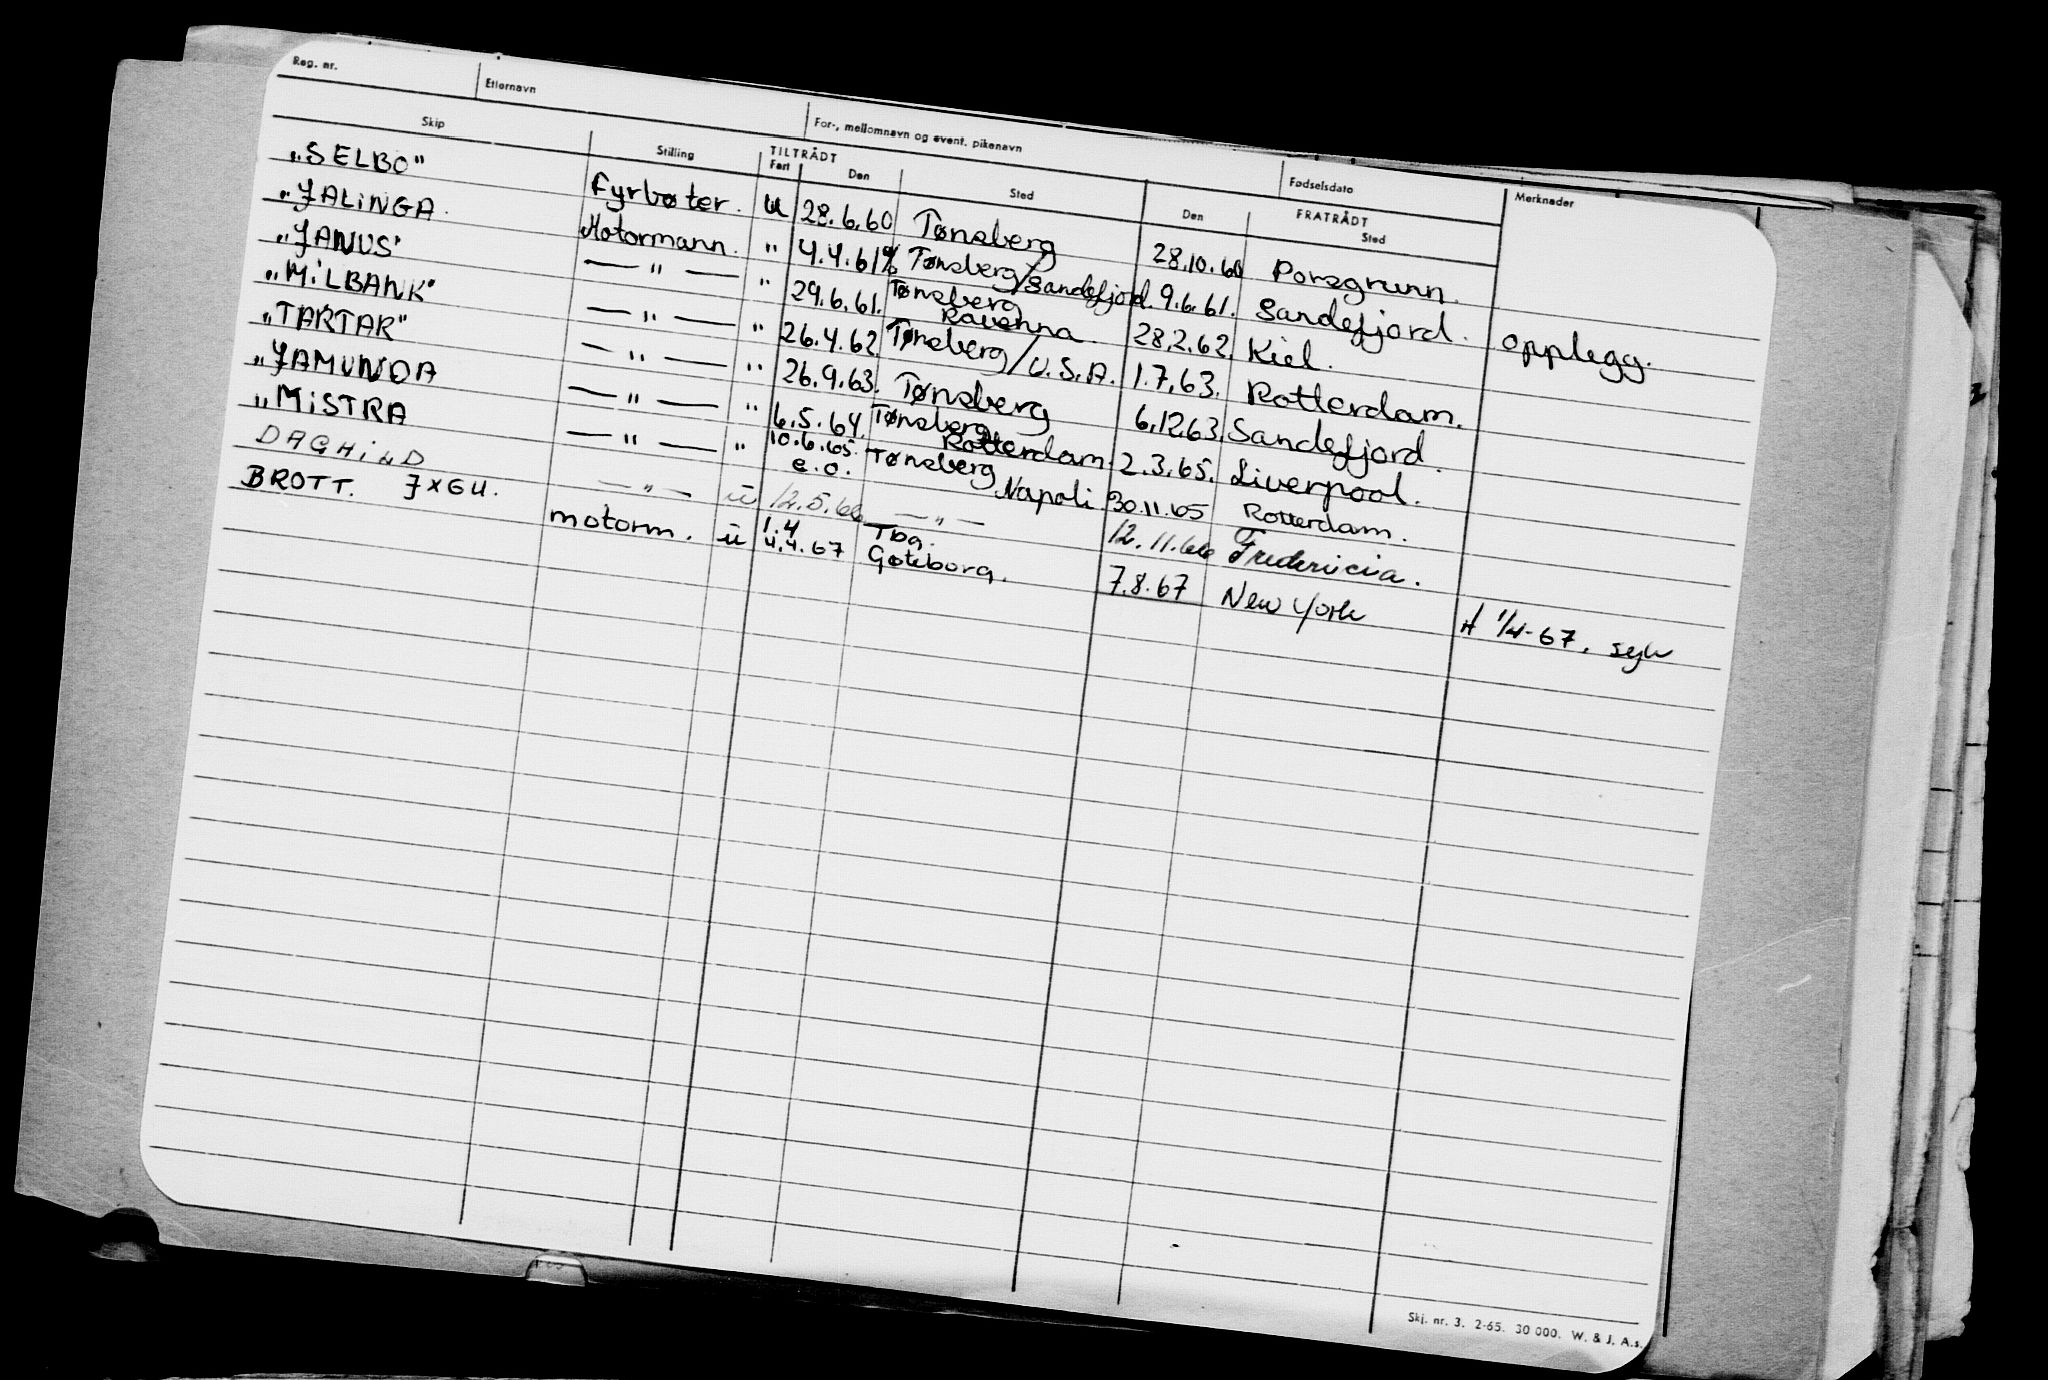 Reg. nr. Etternavn For-, mellomnavn og event. pikenavn Fødselsdato
Skip Stilling TILTRÅDT Fart Den Sted FRATRÅDT Den Sted Merknader
"SELBO" Fyrbøter. u 28.6.60 Tønsberg 28.10.60 Porsgrunn.
"JALINGA. Motormann. " 4.4.61 Tønsberg/Sandefjord. 9.6.61. Sandefjord. opplegg.
"JANUS" — " — " 29.6.61. Tønsberg Ravenna. 28.2.62. Kiel.
"MILBANK" — " — " 26.4.62. Tønsberg/U.S.A. 1.7.63. Rotterdam.
"TARTAR" — " — " 26.9.63. Tønsberg 6.12.63. Sandefjord.
"JAMUNDA — " — " 6.5.64. Tønsberg Rotterdam. 2.3.65. Liverpool.
"MISTRA — " — " 10.6.65. e.o. Tønsberg Napoli. 30.11.65 Rotterdam.
DAGHILD — " — ū 12.5.66 — " — 12.11.66 Fredericia.
BROTT. JXGU. motorm. ū 1.4 4.4.67 Tbg. Gøteborg. 7.8.67 New York 1/4-67.
Skj. nr. 3. 2-65. 30 000. W. & J. A.s.